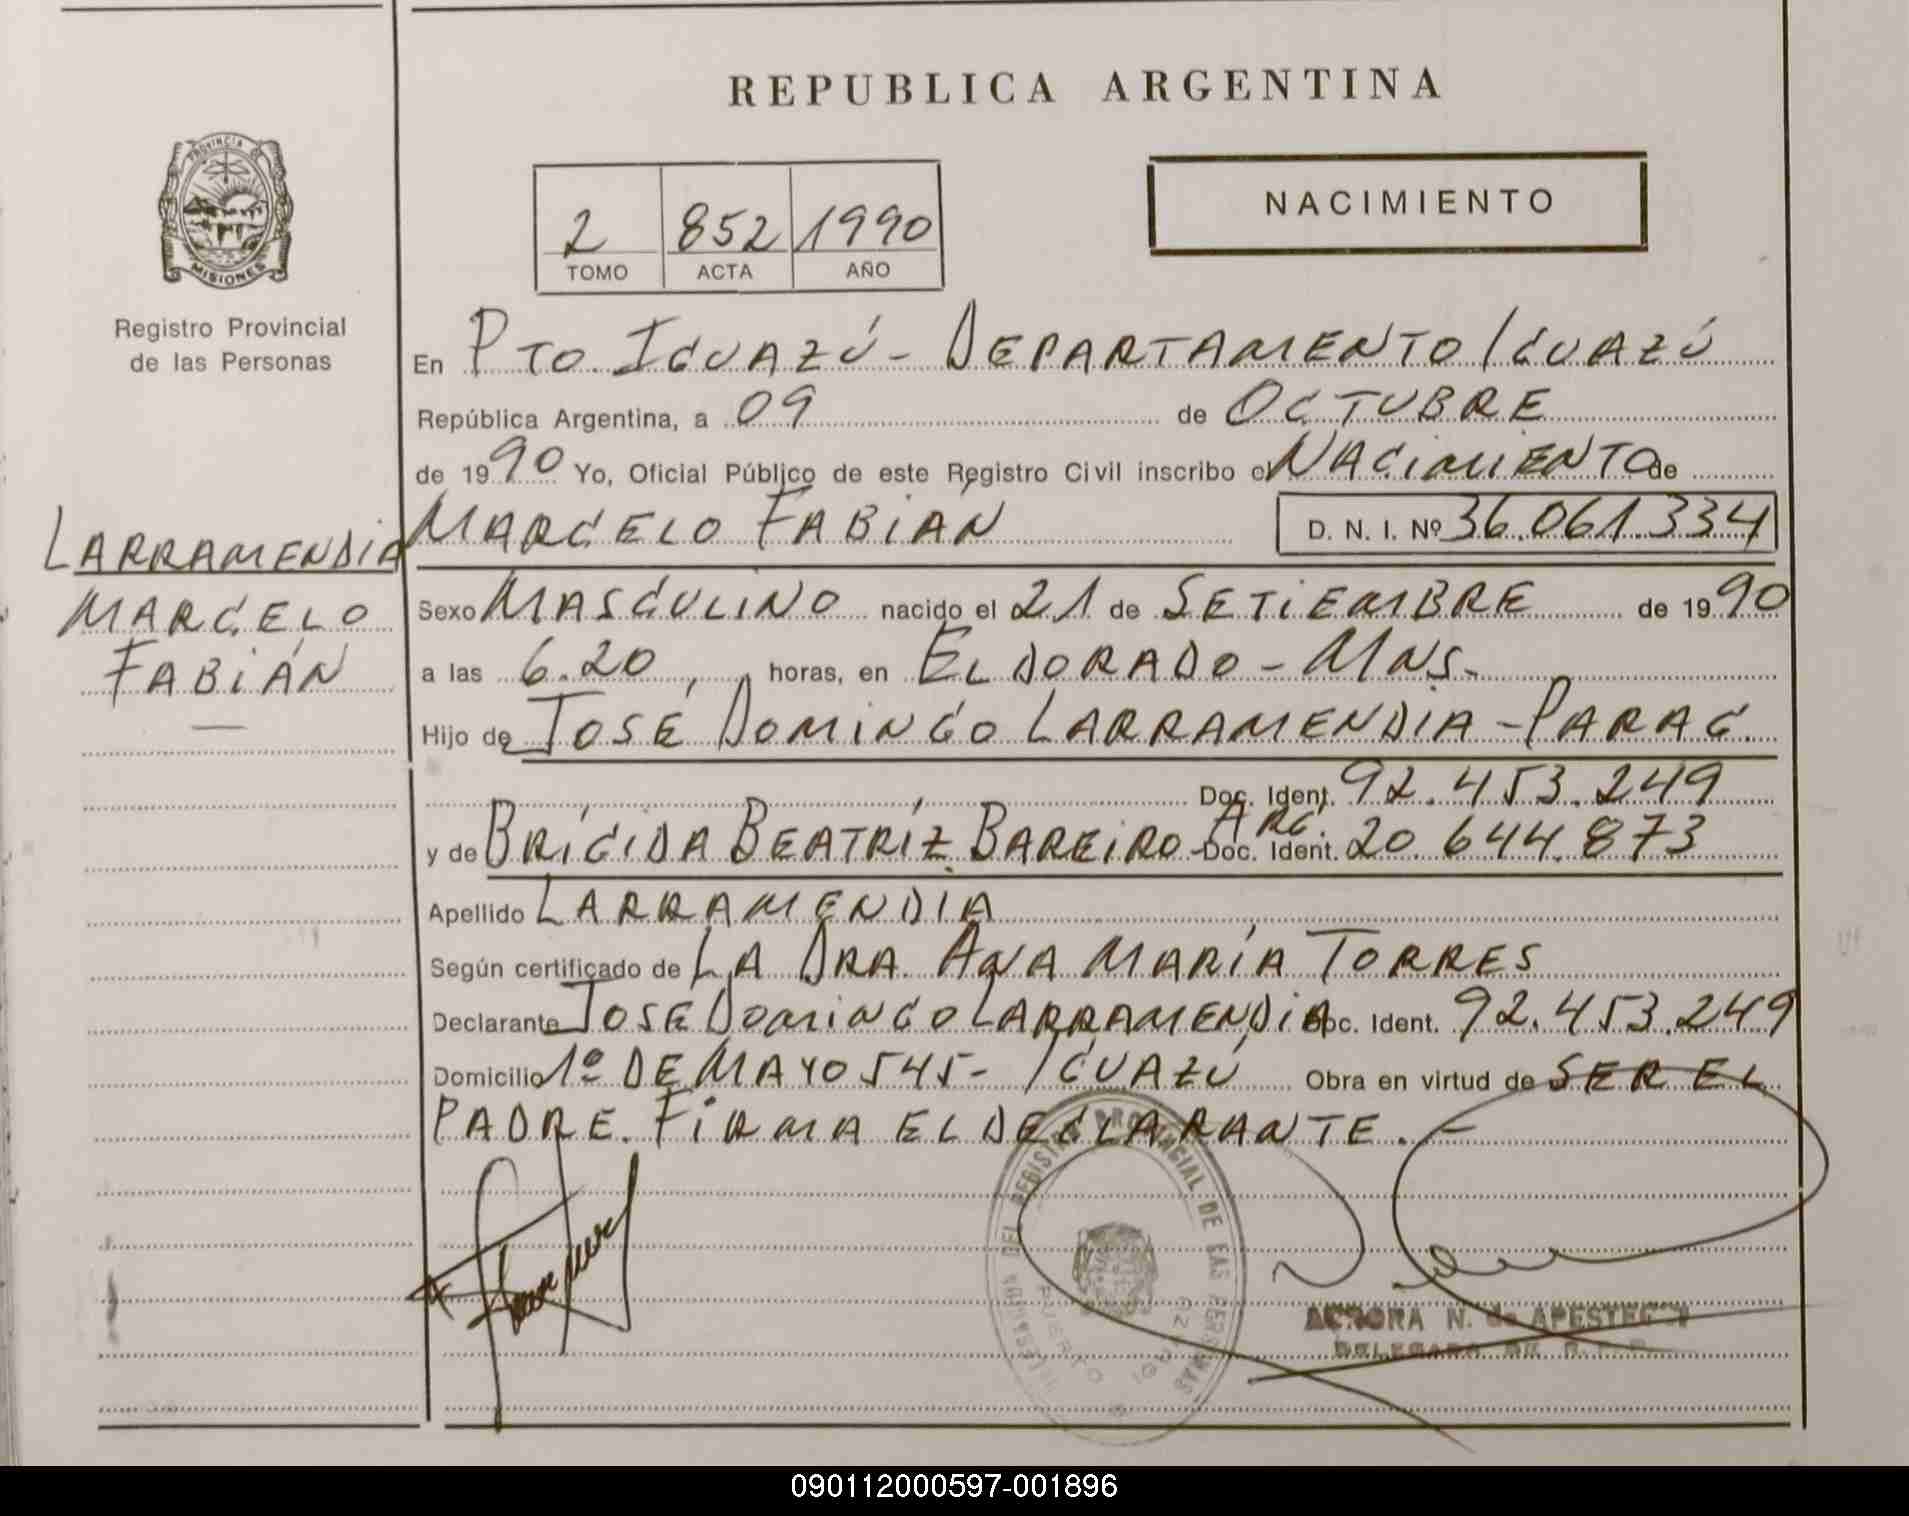 REPUBLICA ARGENTINA
PROVINCIA DE
MISIONES
Registro Provincial
de las Personas
2 852 1990
TOMO ACTA AÑO
NACIMIENTO
En PTO. IGUAZÚ - DEPARTAMENTO IGUAZÚ
República Argentina, a 09 de OCTUBRE
de 1990 Yo, Oficial Público de este Registro Civil inscribo el NACIMIENTO de
MARCELO FABIÁN D. N. I. Nº 36.061.334
LARRAMENDIA
MARCELO
FABIÁN
Sexo MASCULINO nacido el 21 de SETIEMBRE de 1990
a las 6.20 horas, en ELDORADO - MNS-
Hijo de JOSÉ DOMINGO LARRAMENDIA - PARAG.
Doc. Ident. 92.453.249
y de BRÍGIDA BEATRÍZ BAREIRO - ARG. Doc. Ident. 20.644.873
Apellido LARRAMENDIA
Según certificado de LA DRA. ANA MARÍA TORRES
Declarante JOSE DOMINGO LARRAMENDIA Doc. Ident. 92.453.249
Domicilio 1º DE MAYO 545- IGUAZÚ Obra en virtud de SER EL
PADRE. FIRMA EL DECLARANTE. -
DEL REGISTRO PROVINCIAL DE LAS PERSONAS
MISIONES
PUERTO
AURORA N. de
DELEGADO
090112000597-001896